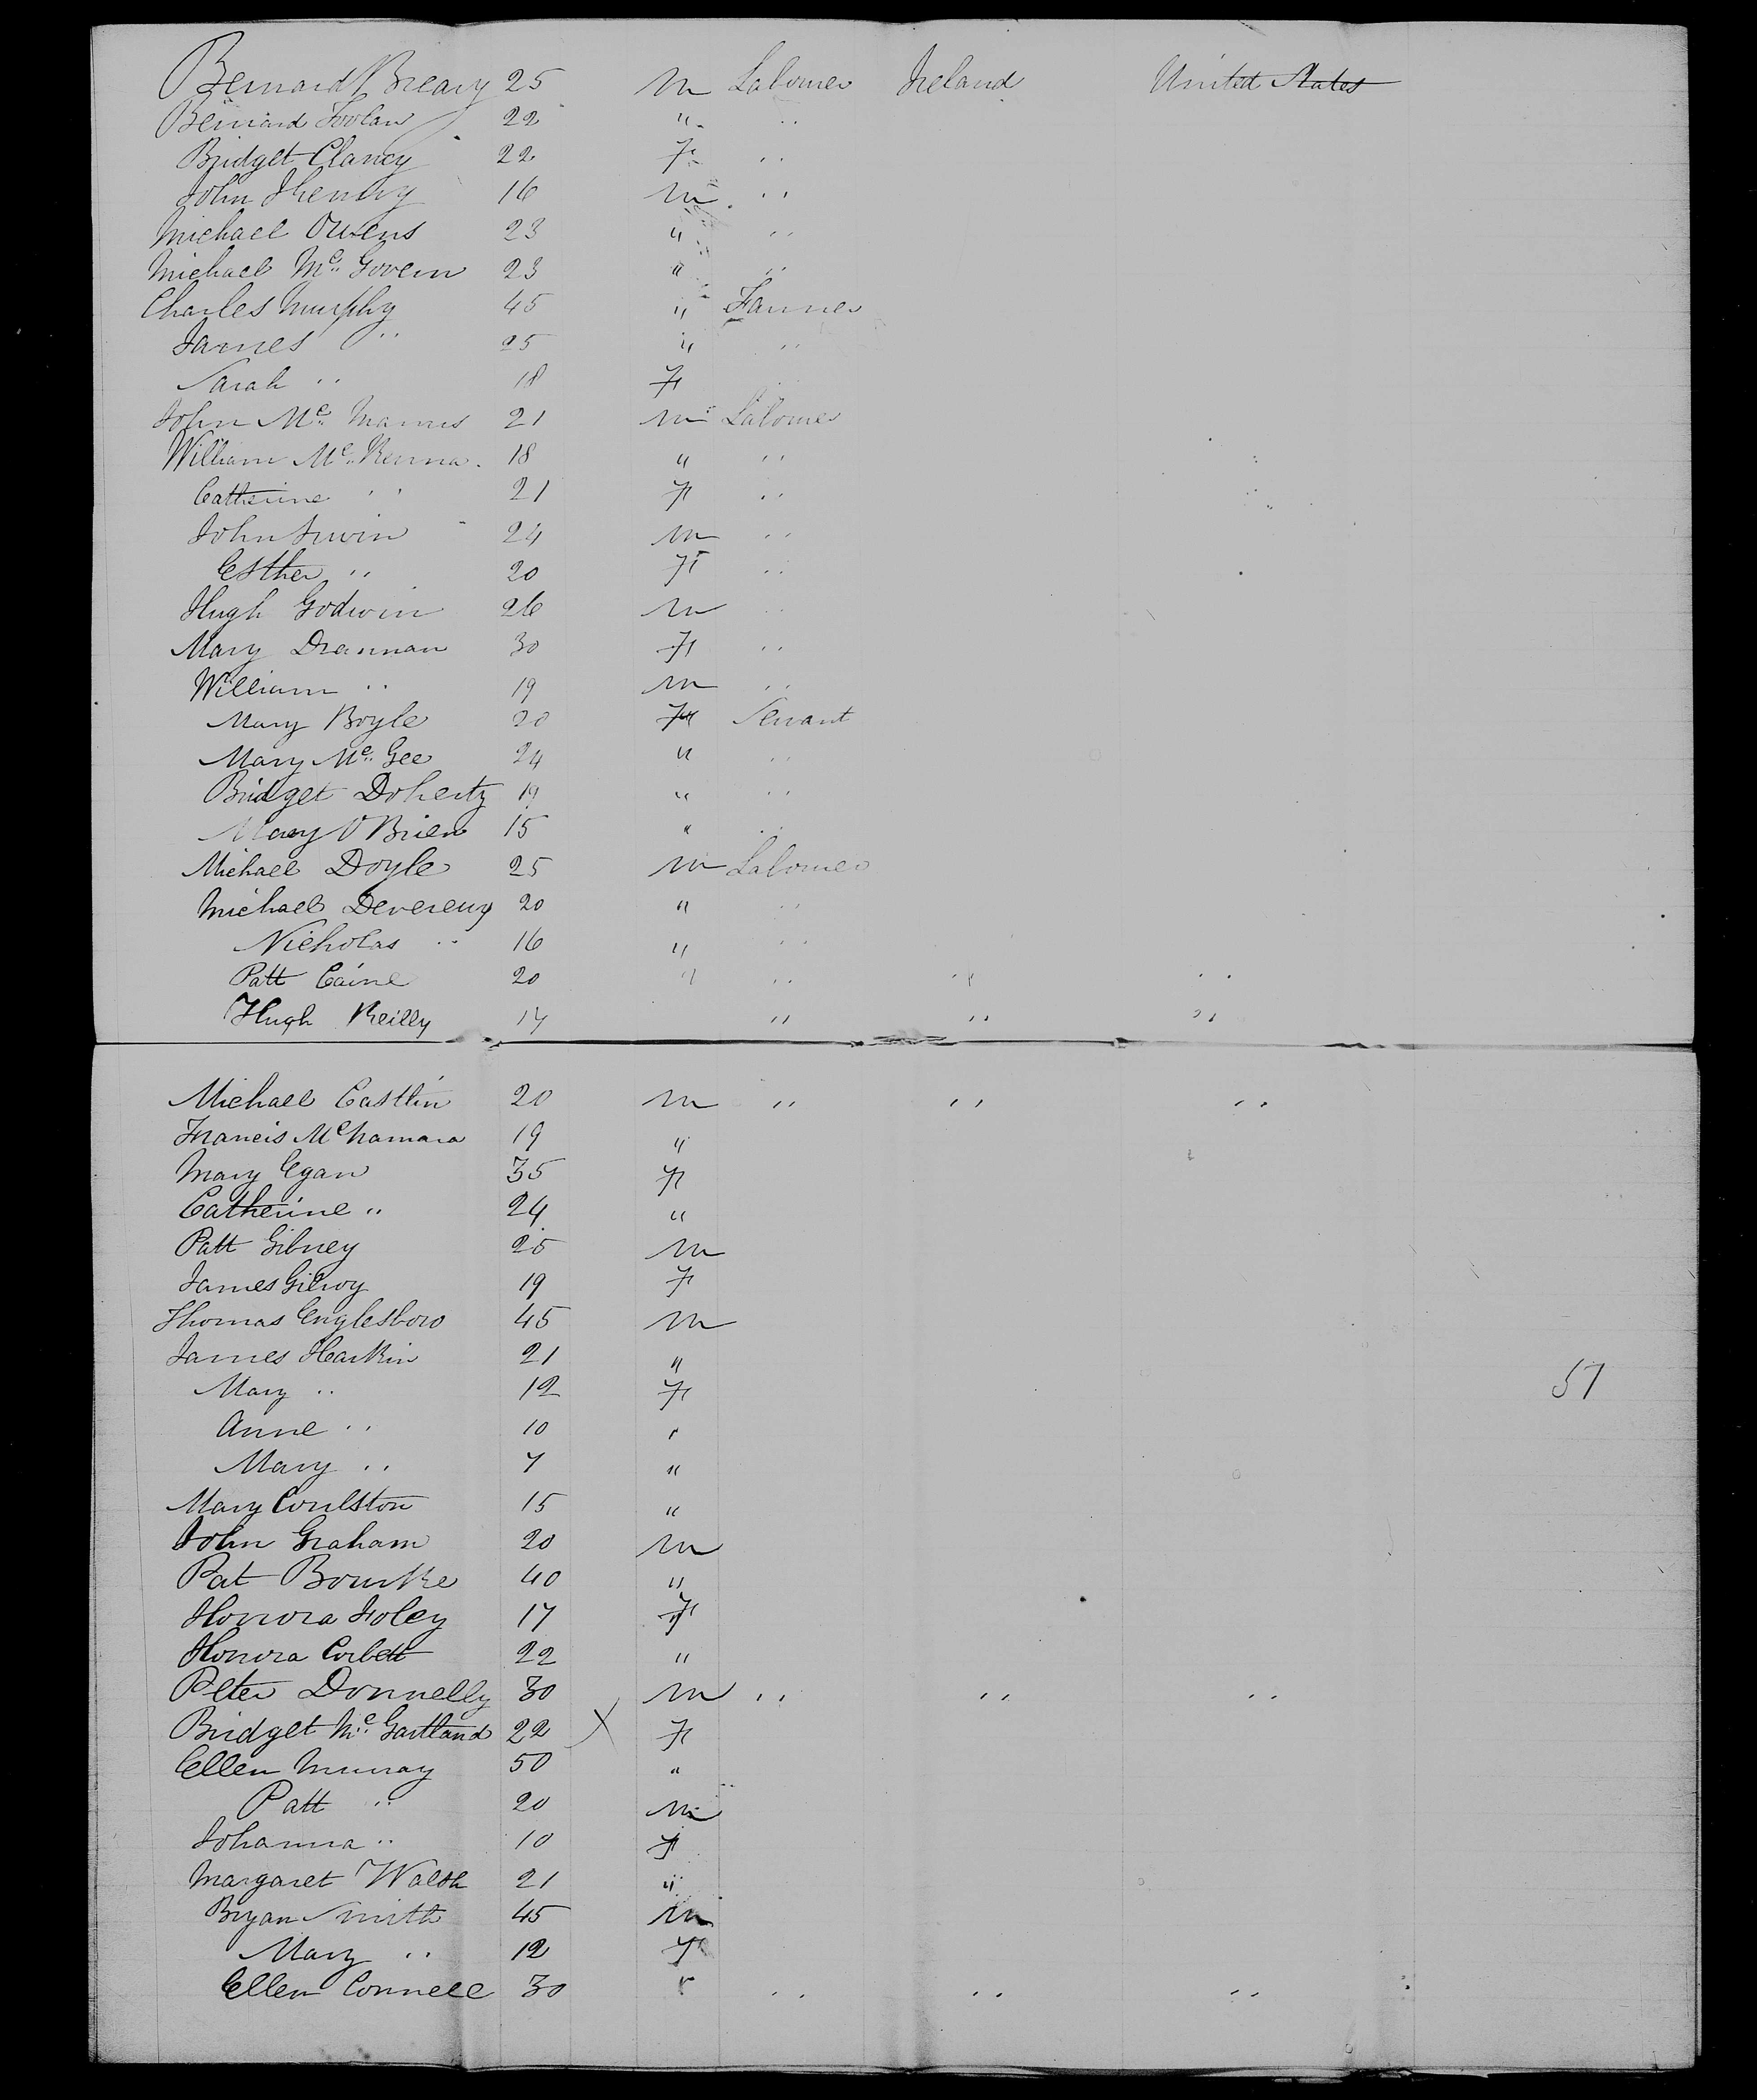 Bernard Breary 25 M Labourer Ireland United States
Bernard Foolan 22 " "
Bridget Clancy 22 F "
John Sheedy 16 M "
Michael Owens 23 " "
Michael Mc Govern 23 " "
Charles Murphy 45 " Farmer
James " 25 " "
Sarah " 18 F
John Mc Manus 21 M Labourer
William Mc Kenna 18 " "
Catherine " 21 F "
John Irwin 24 M "
Esther " 20 F "
Hugh Godwin 26 M "
Mary Drennan 30 F "
William " 19 M "
Mary Boyle 20 F Servant
Mary Mc Gee 24 " "
Bridget Doherty 19 " "
Mary O Brien 15 " "
Michael Doyle 25 M Labourer
Michael Devereux 20 " "
Nicholas " 16 " "
Patt Caine 20 " " " "
Hugh Reilly 17 " " "
Michael Castlin 20 M " " "
Francis McNamara 19 "
Mary Egan 35 F
Catherine " 24 "
Patt Gibney 25 M
James Gilroy 19 F
Thomas Englesboro 45 M
James Harkin 21 "
Mary " 12 F
Anne " 10 "
Mary " 7 "
57
Mary Coulston 15 "
John Graham 20 M
Pat Bourke 40 "
Honora Foley 17 F
Honora Corbett 22 "
Peter Donnelly 30 M " " "
Bridget Mc Gartland 22 X F
Ellen Murray 50 "
Patt " 20 M
Johanna " 10 F
Margaret Walsh 21 "
Bryan Smith 45 M
Mary " 12 F
Ellen Connell 30 " " " "